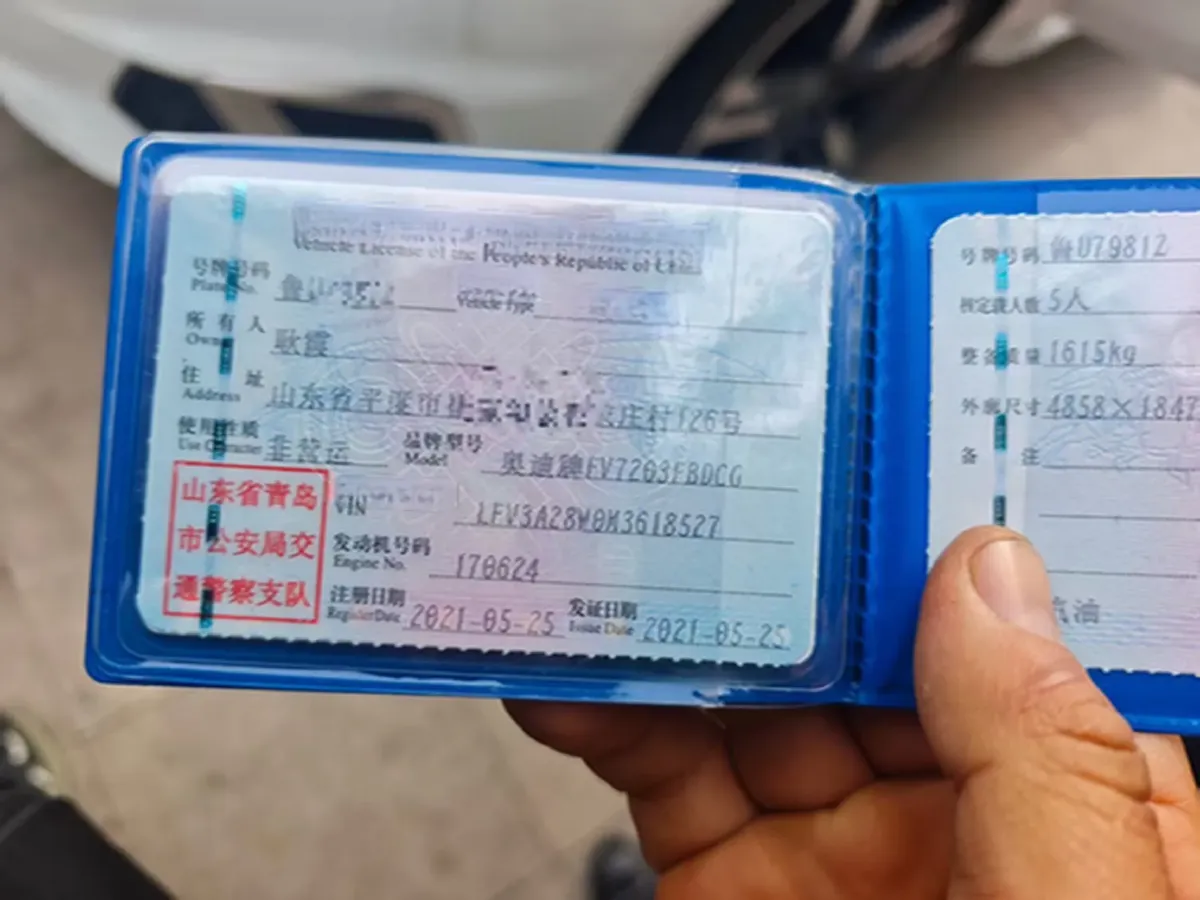 Vehicle License of the People's Republic of China
号牌号码
Plate No.
Vehicle Type
所有人 耿霞
Owner
住址 山东省平度市 庄村126号
Address
使用性质 非营运
Use Character
品牌型号 奥迪牌FV7203FBDCG
Model
VIN LFV3A28W0M3618527
发动机号码 170624
Engine No.
注册日期 2021-05-25
Register Date
发证日期 2021-05-25
Issue Date
山东省青岛
市公安局交
通警察支队
号牌号码 鲁U7981Z
核定载人数 5人
整备质量 1615kg
外廓尺寸 4858×1847
备注
汽油